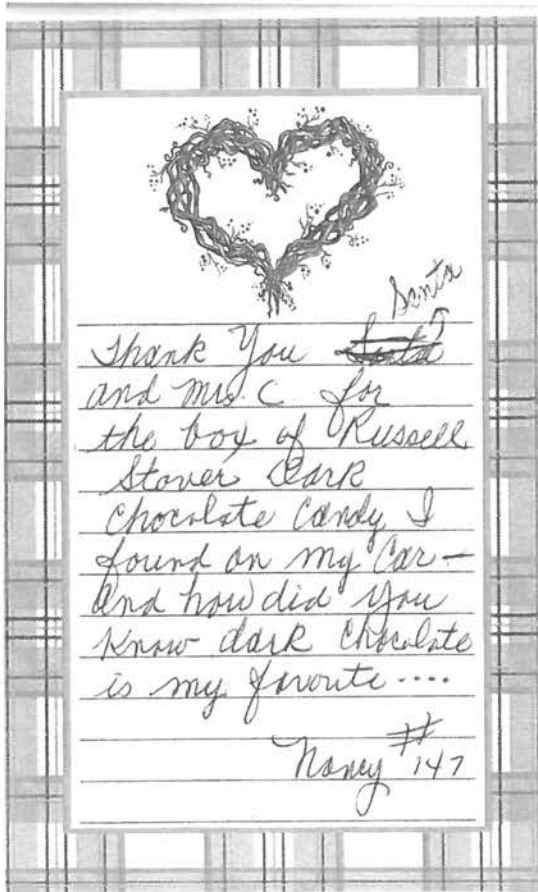 Santa
Thank You
and Mrs. C for
the box of Russell
Stover Dark
Chocolate Candy I
found on my Car —
and how did you
know dark chocolate
is my favorite ....
Nancy #147